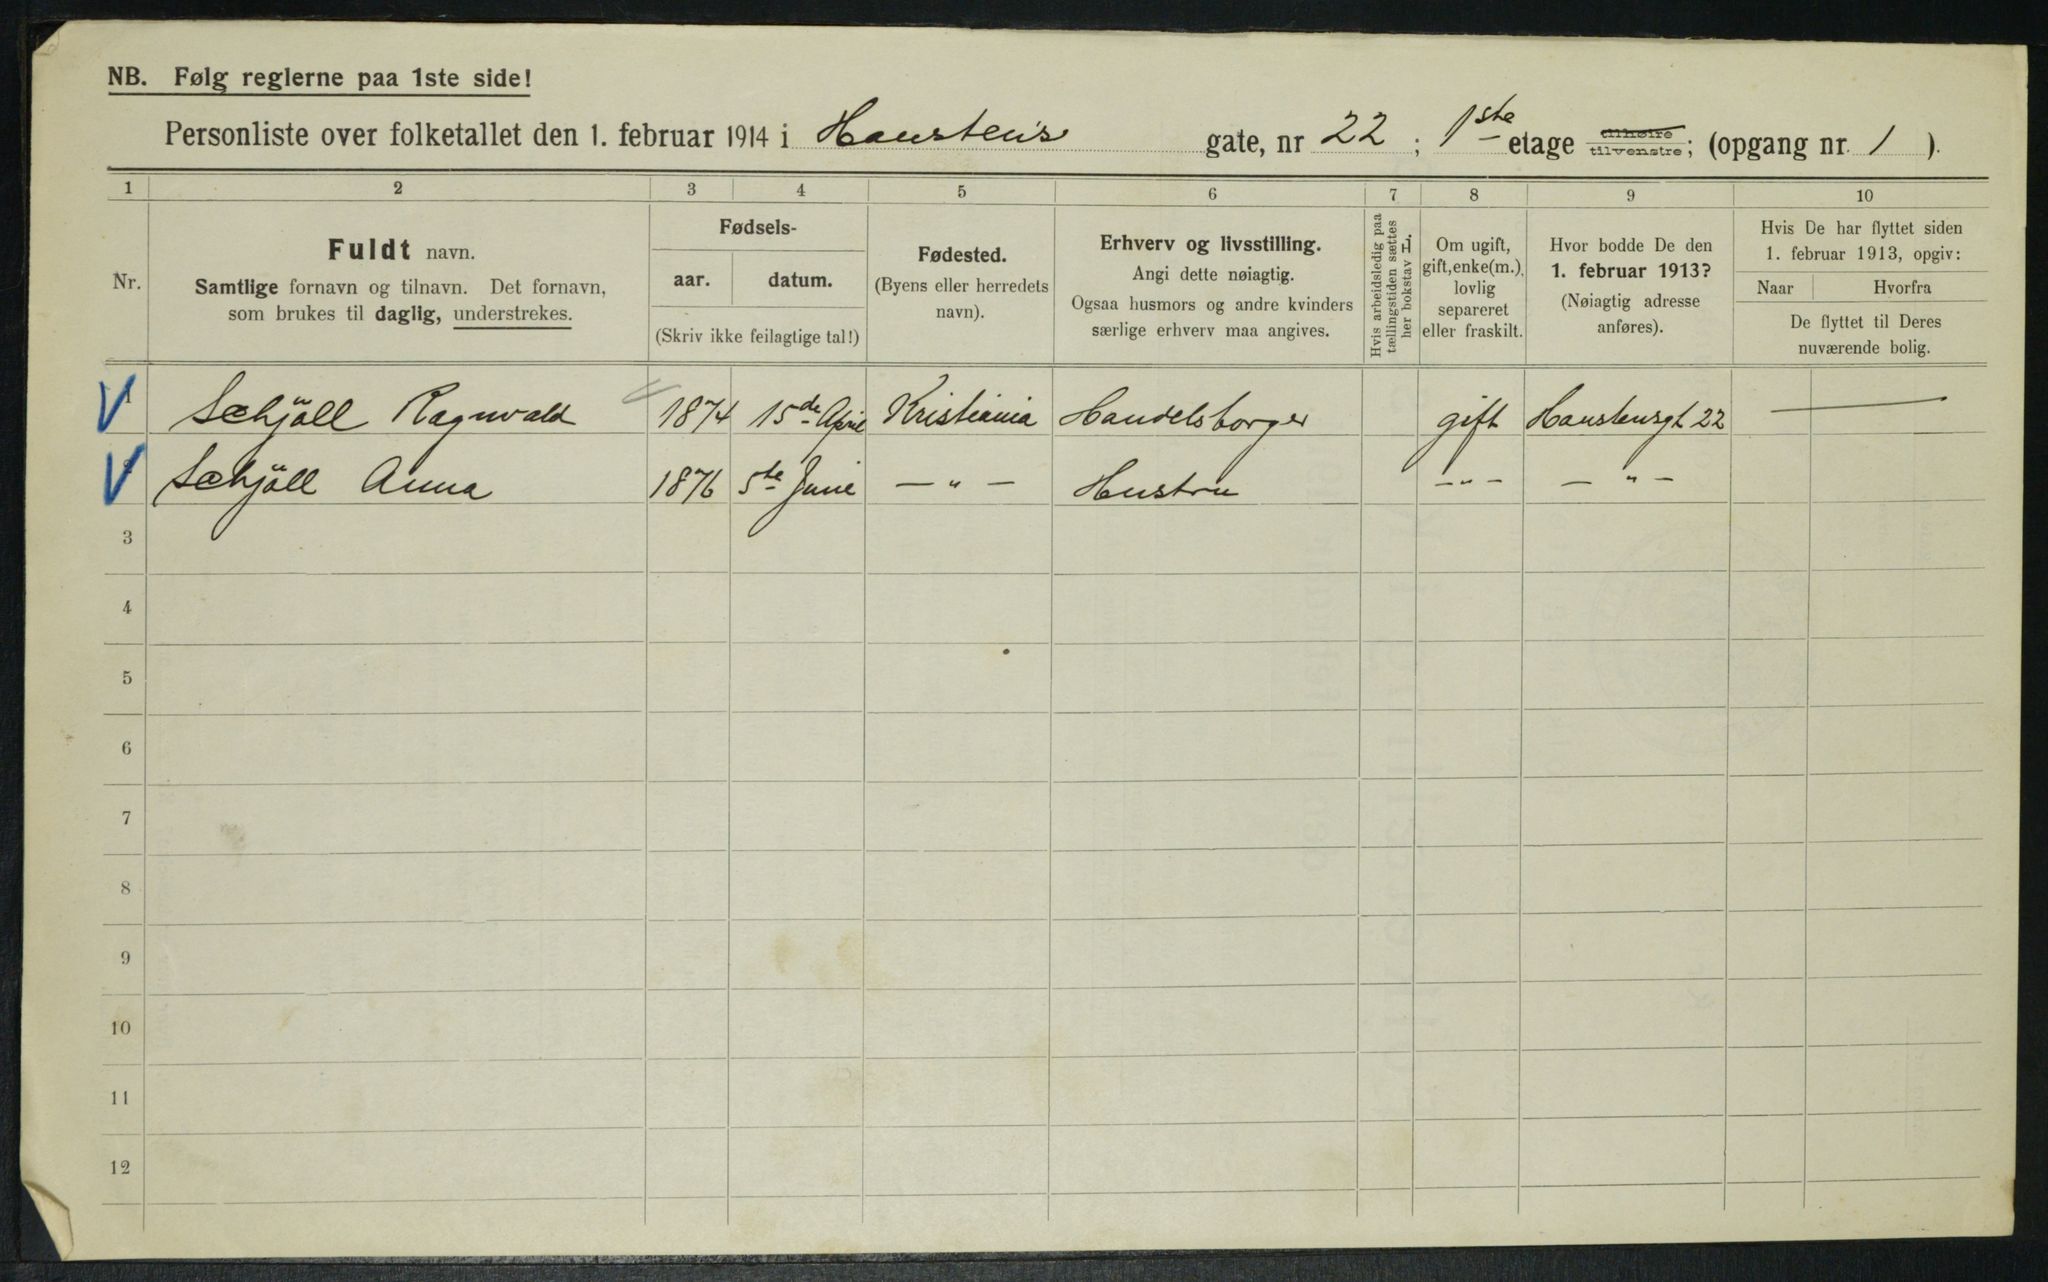 NB. Følg reglerne paa 1ste side!
Personliste over folketallet den 1. februar 1914 i Hansteen's gate, nr 22 ; 1ste etage tilhøire tilvenstre; (opgang nr. 1 ).
1 2 3 4 5 6 7 8 9 10
Nr.
Fuldt navn.
Samtlige fornavn og tilnavn. Det fornavn,
som brukes til daglig, understrekes.
Fødsels-
aar. datum.
(Skriv ikke feilagtige tal!)
Fødested.
(Byens eller herredets
navn).
Erhverv og livsstilling.
Angi dette nøiagtig.
Ogsaa husmors og andre kvinders
særlige erhverv maa angives.
Hvis arbeidsledig paa
tællingstiden sættes
her bokstav L.
Om ugift,
gift, enke(m.),
lovlig
separeret
eller fraskilt.
Hvor bodde De den
1. februar 1913?
(Nøiagtig adresse
anføres).
Hvis De har flyttet siden
1. februar 1913, opgiv:
Naar Hvorfra
De flyttet til Deres
nuværende bolig.
1 Schjöll Ragnvald 1874 15de April Kristiania Handelsborger gift Hanstensgt 22 —
2 Schjöll Anna 1876 5te Juni — " — Hustru — " — — " —
3
4
5
6
7
8
9
10
11
12